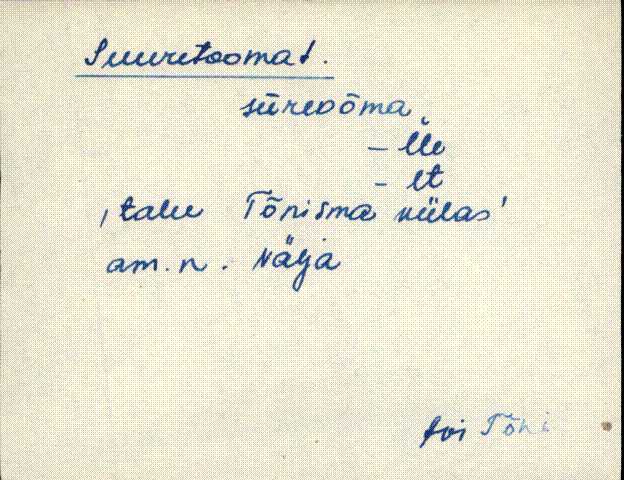 Suuretoomat.
sūreoōma
– lle
– lt
‚talu Tõnisma külas’
am. n. Nälja
Tõni